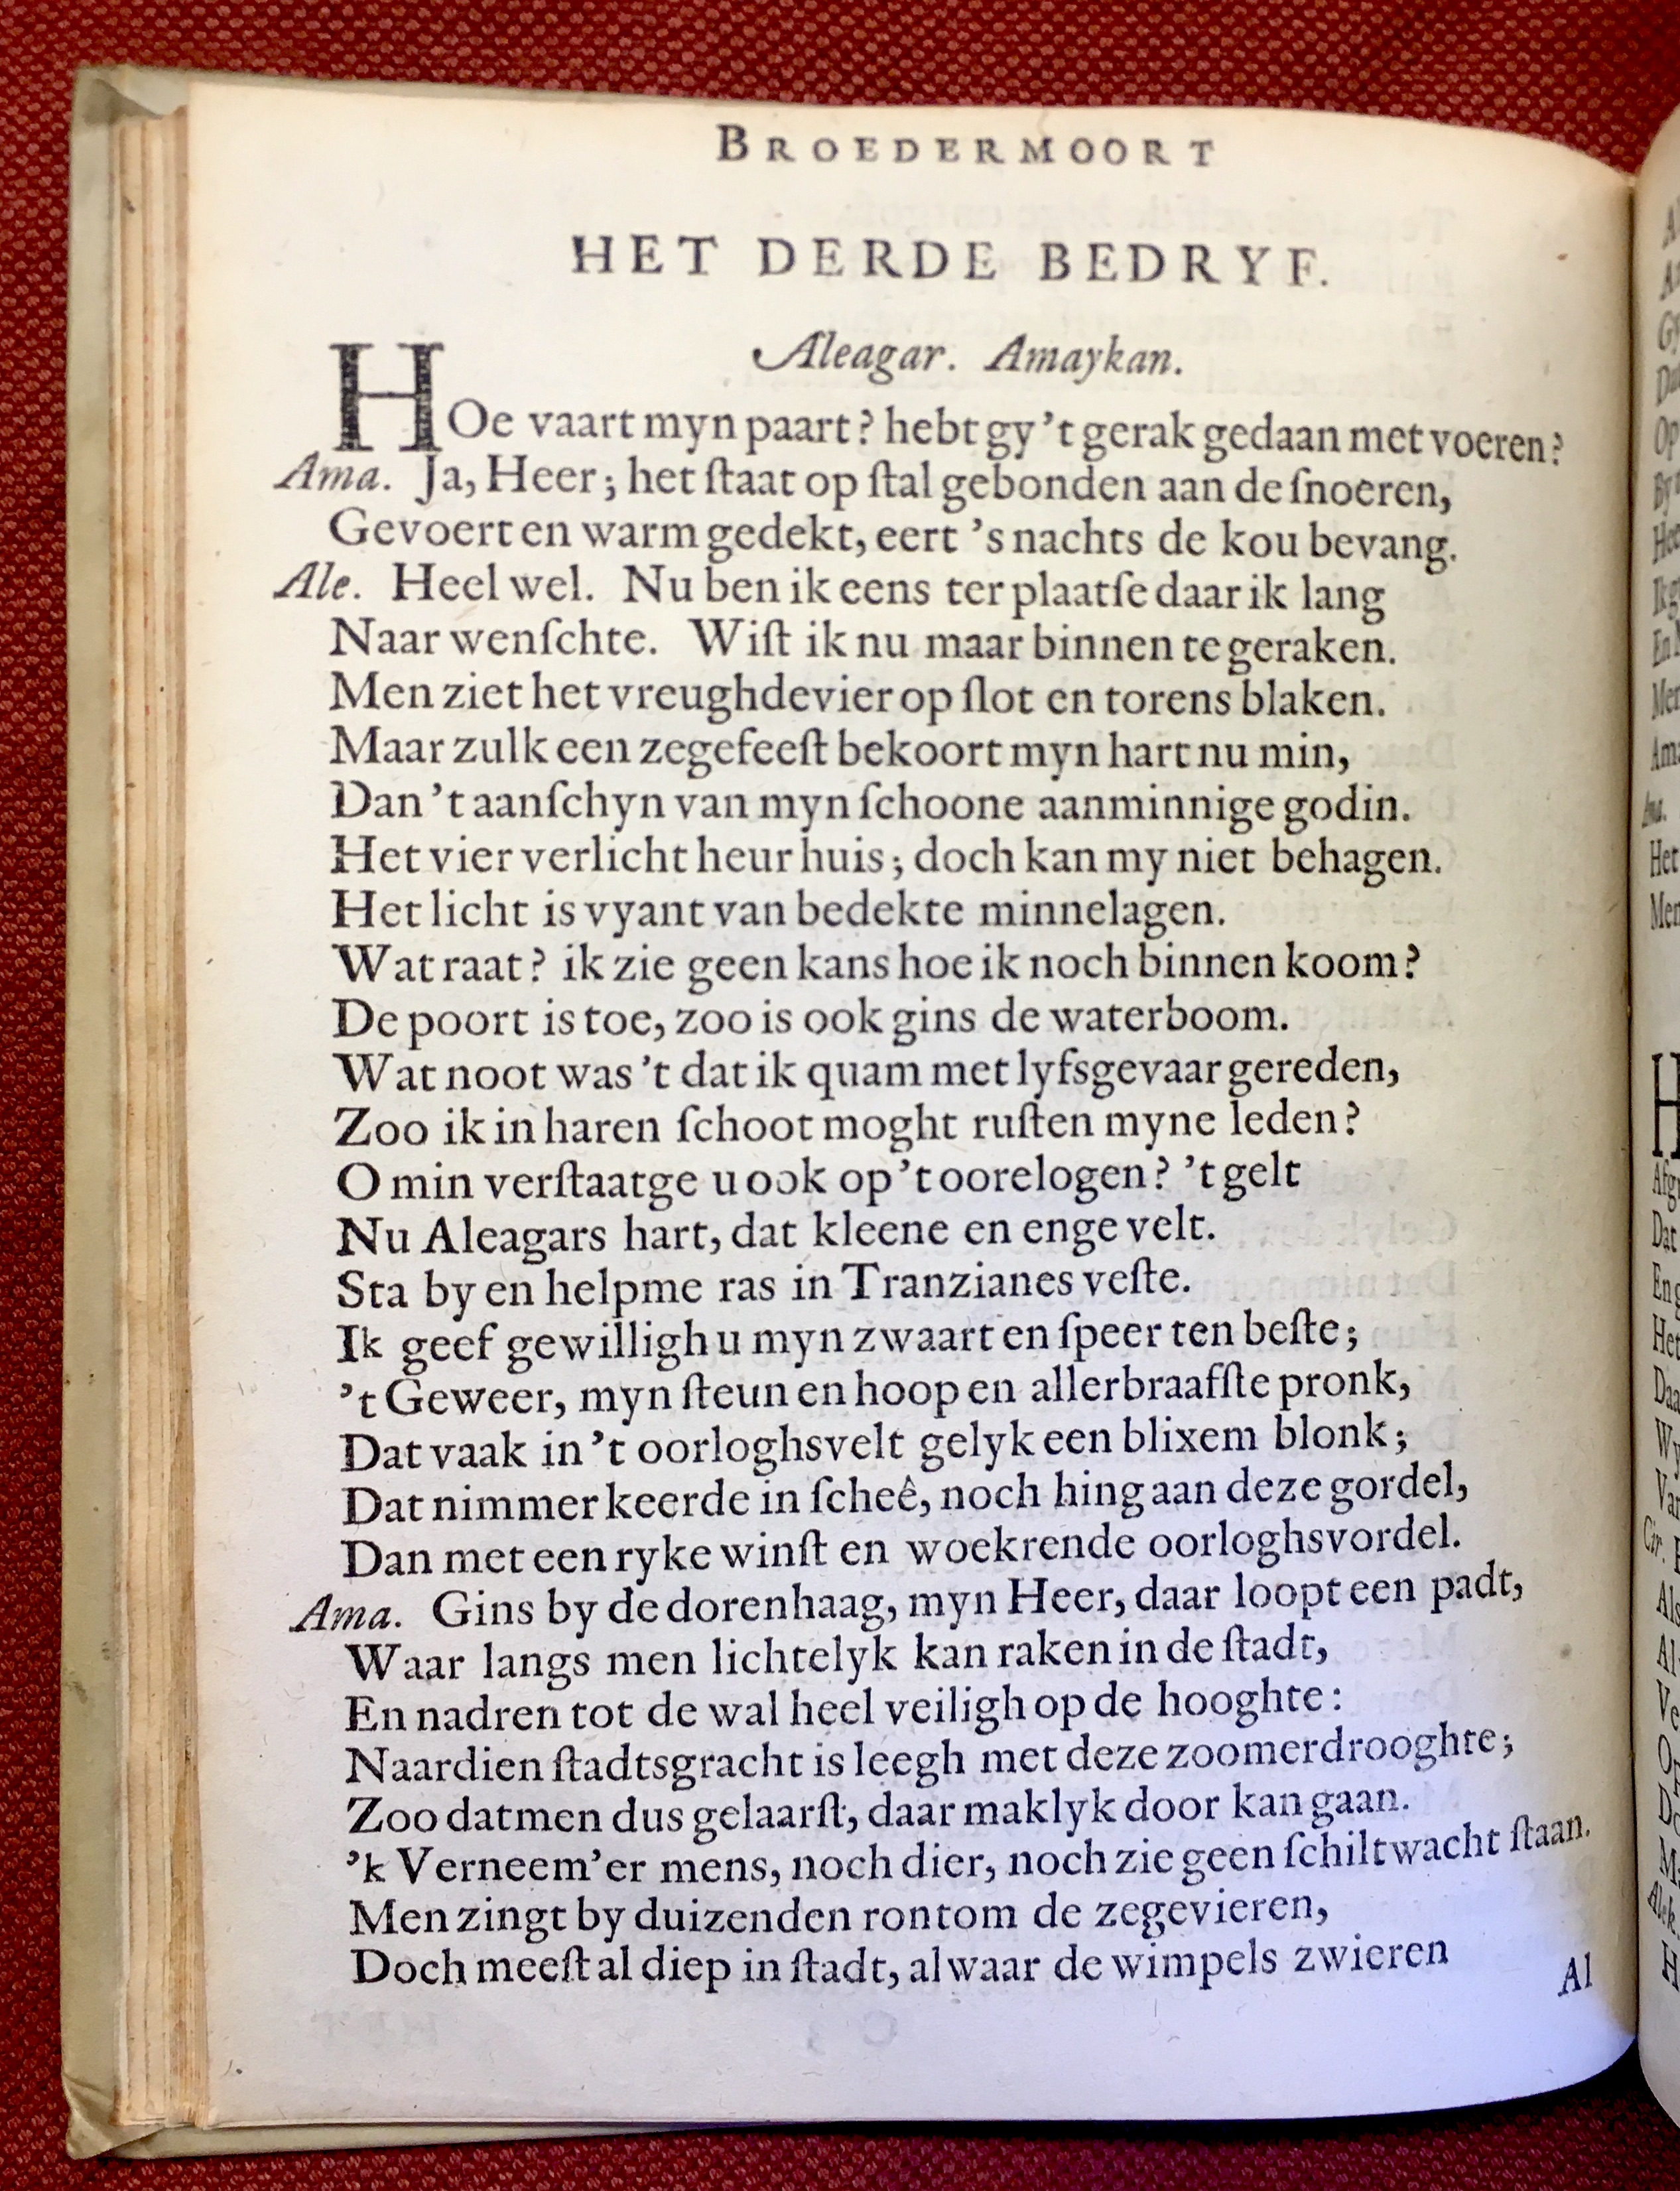 BROEDERMOORT
HET DERDE BEDRYF.
Aleagar. Amaykan.
HOe vaart myn paart? hebt gy 't gerak gedaan met voeren?
Ama. Ja, Heer; het ſtaat op ſtal gebonden aan de ſnoeren,
Gevoert en warm gedekt, eert 's nachts de kou bevang.
Ale. Heel wel. Nu ben ik eens ter plaatſe daar ik lang
Naar wenſchte. Wiſt ik nu maar binnen te geraken.
Men ziet het vreughdevier op ſlot en torens blaken.
Maar zulk een zegefeeſt bekoort myn hart nu min,
Dan 't aanſchyn van myn ſchoone aanminnige godin.
Het vier verlicht heur huis; doch kan my niet behagen.
Het licht is vyant van bedekte minnelagen.
Wat raat? ik zie geen kans hoe ik noch binnen koom?
De poort is toe, zoo is ook gins de waterboom.
Wat noot was 't dat ik quam met lyfsgevaar gereden,
Zoo ik in haren ſchoot moght ruſten myne leden?
O min verſtaatge u ook op 't oorelogen? 't gelt
Nu Aleagars hart, dat kleene en enge velt.
Sta by en helpme ras in Tranzianes veſte.
Ik geef gewilligh u myn zwaart en ſpeer ten beſte;
't Geweer, myn ſteun en hoop en allerbraafſte pronk,
Dat vaak in 't oorloghsvelt gelyk een blixem blonk;
Dat nimmer keerde in ſcheê, noch hing aan deze gordel,
Dan met een ryke winſt en woekrende oorloghsvordel.
Ama. Gins by de dorenhaag, myn Heer, daar loopt een padt,
Waar langs men lichtelyk kan raken in de ſtadt,
En nadren tot de wal heel veiligh op de hooghte:
Naardien ſtadtsgracht is leegh met deze zoomerdrooghte;
Zoo datmen dus gelaarſt, daar maklyk door kan gaan.
'k Verneem 'er mens, noch dier, noch zie geen ſchiltwacht ſtaan.
Men zingt by duizenden rontom de zegevieren,
Doch meeſt al diep in ſtadt, alwaar de wimpels zwieren
Al